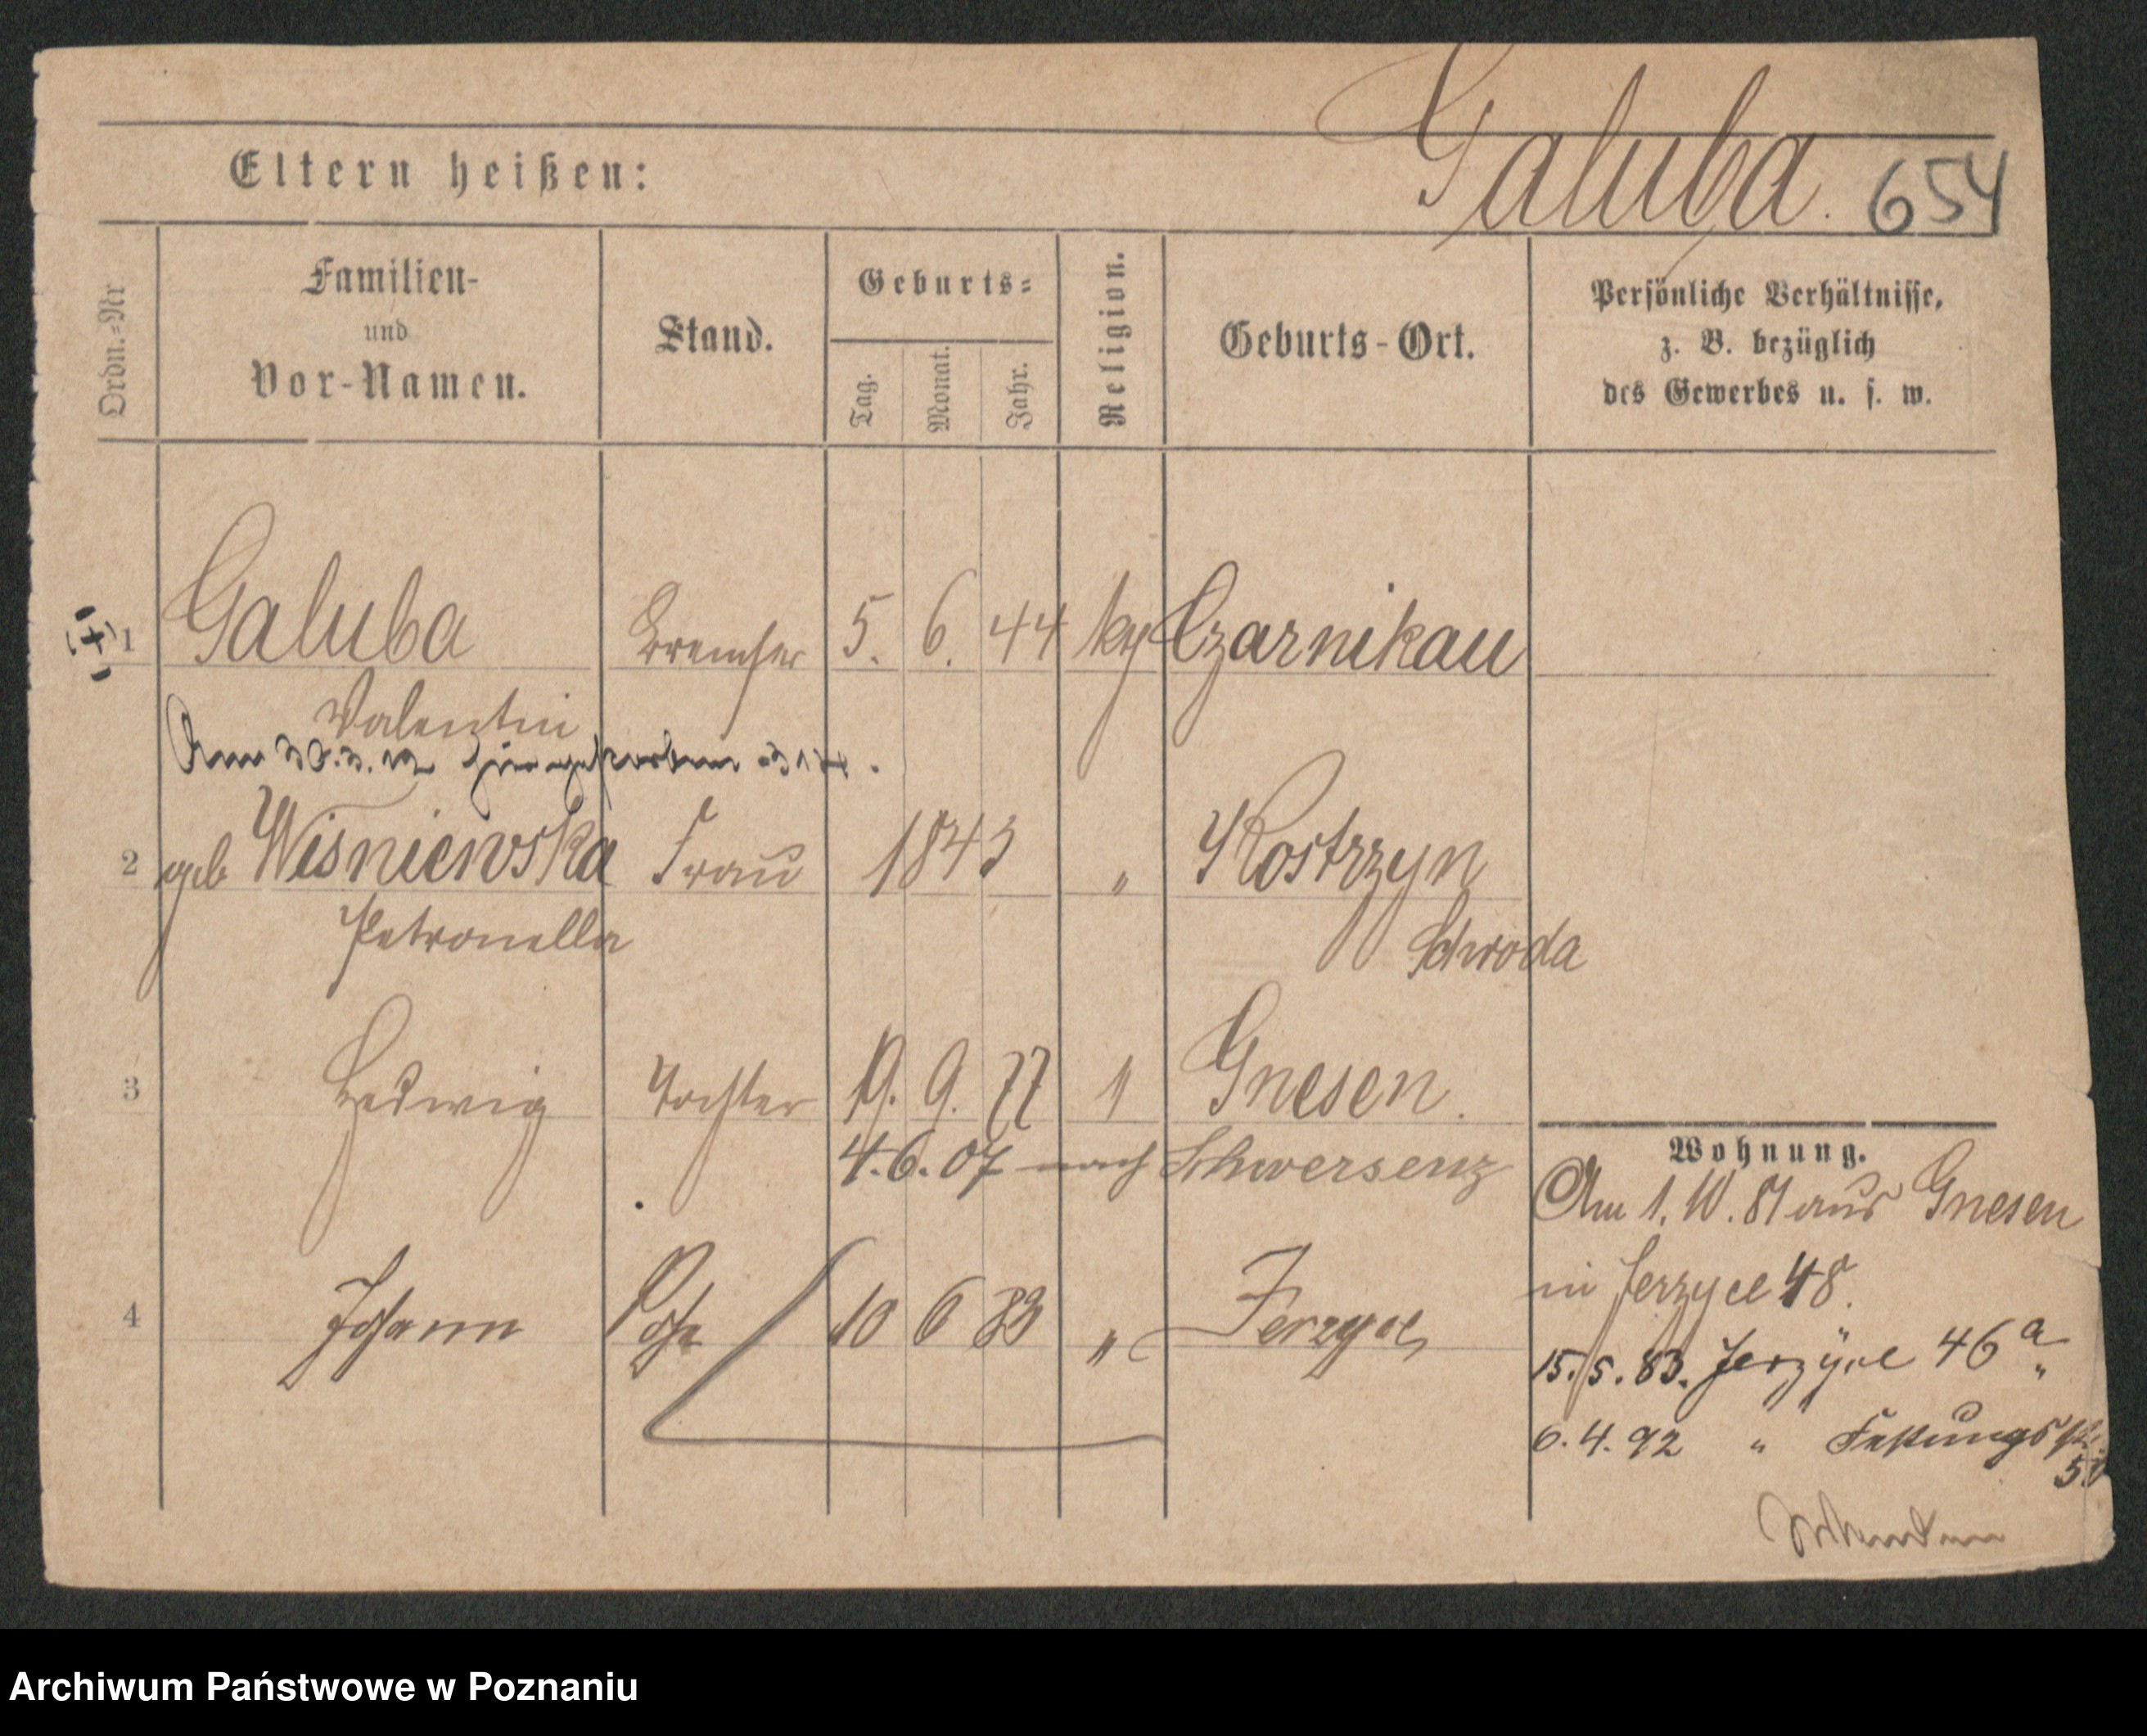 Galuba. 654
Eltern heißen:
Ordn.-Nr
Familien-
und
Vor-Namen.
Stand.
Geburts-
Tag.
Monat.
Jahr.
Religion.
Geburts-Ort.
Persönliche Verhältnisse,
z. B. bezüglich
des Gewerbes u. s. w.
(+) 1 Galuba Bremser 5. 6. 44 Czarnikau
Valentin
Am 30.3.12 hier gestorben
2 geb Wisniewska Frau 1843 " Kostrzyn
Petronella Schroda
3 Hedwig Tochter 19. 9. 77 " Gnesen.
4.6.07 nach Schwersenz
4 Johann Sohn 10 6 83 " Jerzyce
Wohnung.
Am 1. 10. 81 aus Gnesen
in Jerzyce 48.
15.5.83. Jerzyce 46a
6.4.92 " Festungsstr.
Archiwum Państwowe w Poznaniu